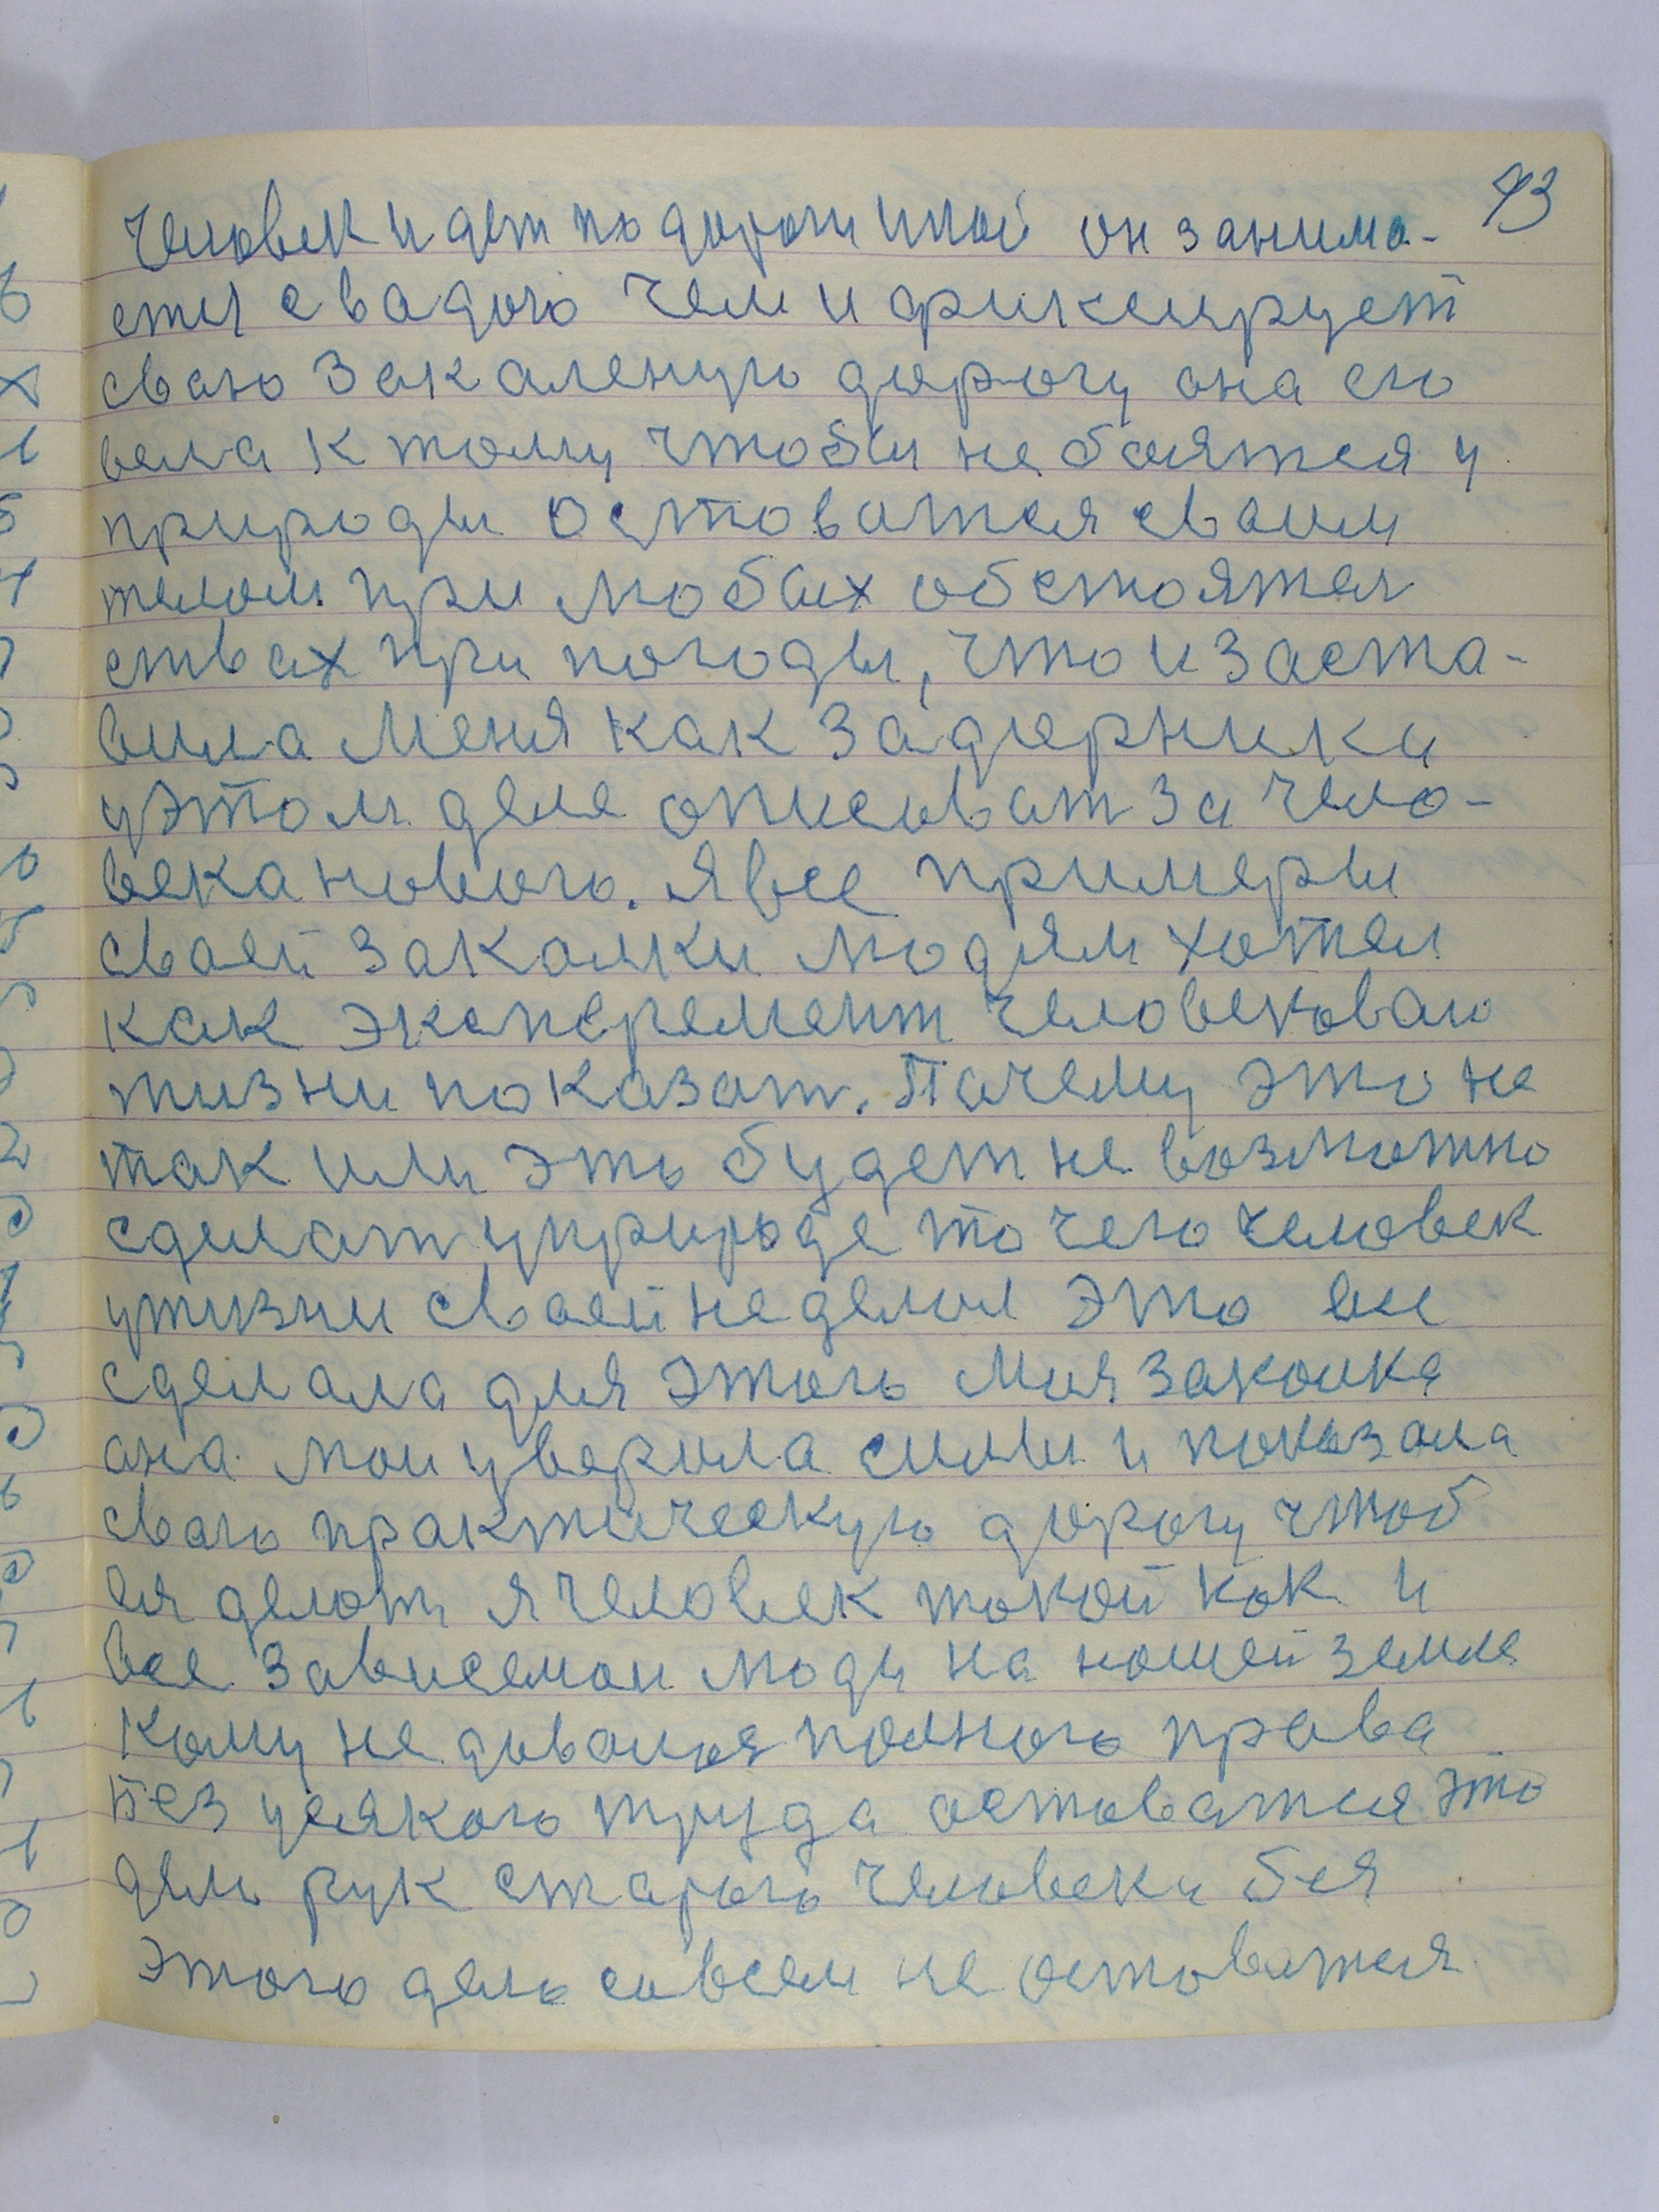 93
человек идет по дороги иной он занима-
ется с вадою чем и фиксирует
сваю закаленую дорогу она его
вела к тому чтобы не боятся у
природы остоватся сваим
телом при любых обстоятел
ствах при погоды, что и заста-
вила меня как задорника
у этом деле описыват за чело-
века нового. Я все примеры
сваей закалки людям хотел
как эксперемент человековаю
жизни показат. Пачему это не
так или это будет не возможно
сделат у природе то чего человек
у жизни сваей не делал это все
сделала для этого моя закалка
она мои уверила силы и показала
сваю практическую дорогу чтоб
ея делат я человек такой как и
все зависемаи люди на нашей земле
кому не довалося полного права
без усякого труда остоватся это
дело рук старого человека без
этого дела совсем не остоватся